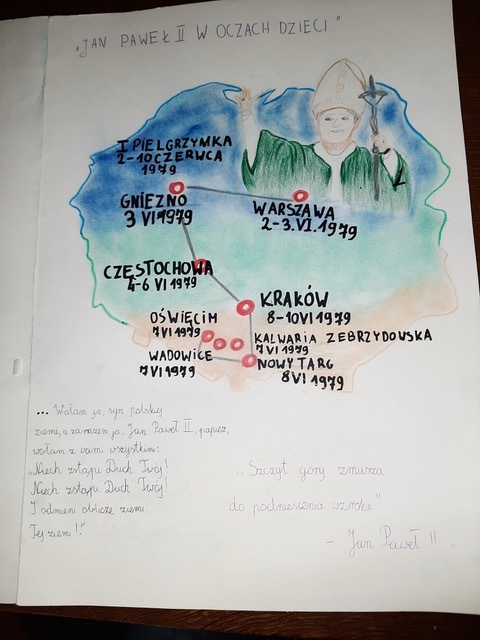 "JAN PAWEŁ II W OCZACH DZIECI"
I PIELGRZYMKA
2-10 CZERWCA
1979
GNIEZNO
3 VI 1979
WARSZAWA
2-3.VI.1979
CZĘSTOCHOWA
4-6 VI 1979
KRAKÓW
8-10 VI 1979
OŚWIĘCIM
7 VI 1979
KALWARIA ZEBRZYDOWSKA
7 VI 1979
WADOWICE
7 VI 1979
NOWY TARG
8 VI 1979
... Wołam ja, syn polskiej
ziemi, a zarazem ja, Jan Paweł II, papież,
wołam z wami wszystkimi:
"Niech zstąpi Duch Twój!
Niech zstąpi Duch Twój!
I odmieni oblicze ziemi.
Tej ziemi!"
"Szczyt góry zmusza
do podniesienia wzroku"
- Jan Paweł II.